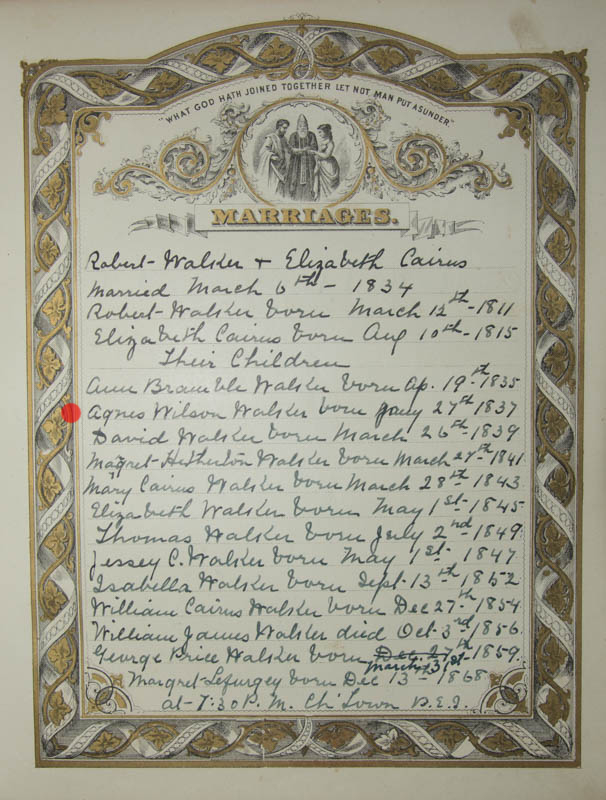 "WHAT GOD HATH JOINED TOGETHER LET NOT MAN PUT ASUNDER."
MARRIAGES.
Robert Walker + Elizabeth Cairns
Married March 6th - 1834
Robert Walker born March 12th - 1811
Elizabeth Cairns born Aug 10th - 1815
Their Children
Ann Bramble Walker born Ap. 19th 1835
Agnes Wilson Walker born Jany 27th 1837
David Walker born March 26th - 1839
Magret Walker born March 1841
Mary Cairns Walker born March 28th 1843
Elizabeth Walker born May 1st - 1845
Thomas Walker born July 2nd - 1849
Jessey C. Walker born May 1st - 1847
Isabella Walker born Sept 13th 1852
William Cairns Walker born Dec 27th - 1854
William James Walker died Oct 3rd / 1856
George Price Walker born Dec. 27th - 1859
March 31st
Margret Lefurgey born Dec 13th 1868
at 7:30 P. M. Ch'Town P.E.I.